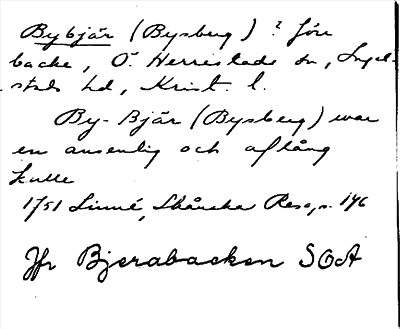 Bybjär (Bysberg) ? Före
backe, Ö. Herrestads sn, Ingel-
stads hd, Krist. l.
By-Bjär (Bysberg) war
en ansenlig och aflång
kulle
1751 Linné, Skånska Resa, s. 196
Jfr Bjerabacken SOA